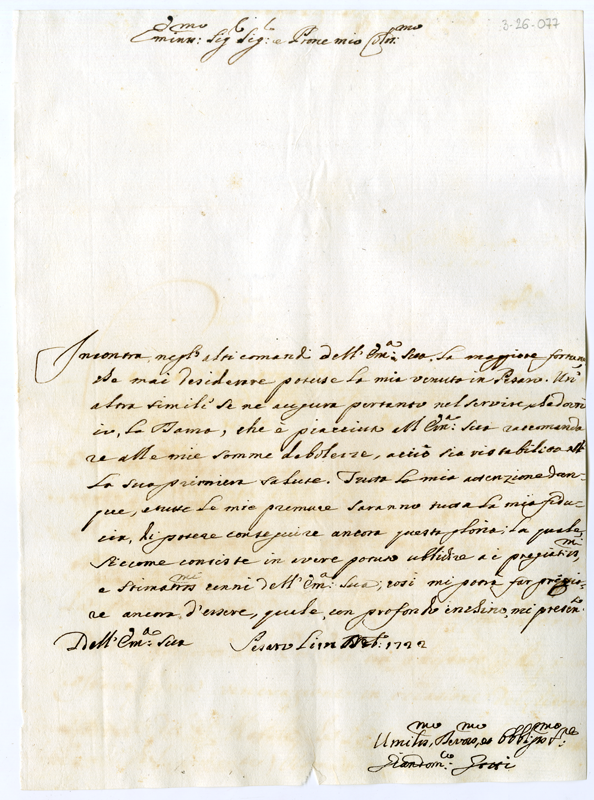 3-26-077
Emin.mo Sig.e Sig.e e Prone mio Colen.mo
Incontra negl'alti comandi dell'Em.a Sua la maggiore fortuna
che mai desiderare potesse la mia venuta in Pesaro. Un'
altra simile se ne augura pertanto nel servire,
la Dama, che è piacciuta all'Em.a Sua raccomanda
re alle mie somme debolezze, acciò sia ristabilita al
la sua primiera salute. Tutta la mia attenzione dun-
que, e tutte le mie premure saranno tutta la mia fidu-
cia, di potere conseguire ancora questa gloria; la quale,
siccome consiste in avere potuto ubbidire a i pregiatis.mi,
e stimatis.mi cenni dell'Em.a Sua; così mi potrà far pregia-
re ancora d'essere, quale, con profondo inchino, mi present.o
Dell'Em.a Sua Pesaro Li 1722
Umilis.mo, Devo.mo, ed Obblig.mo
Giandom.co